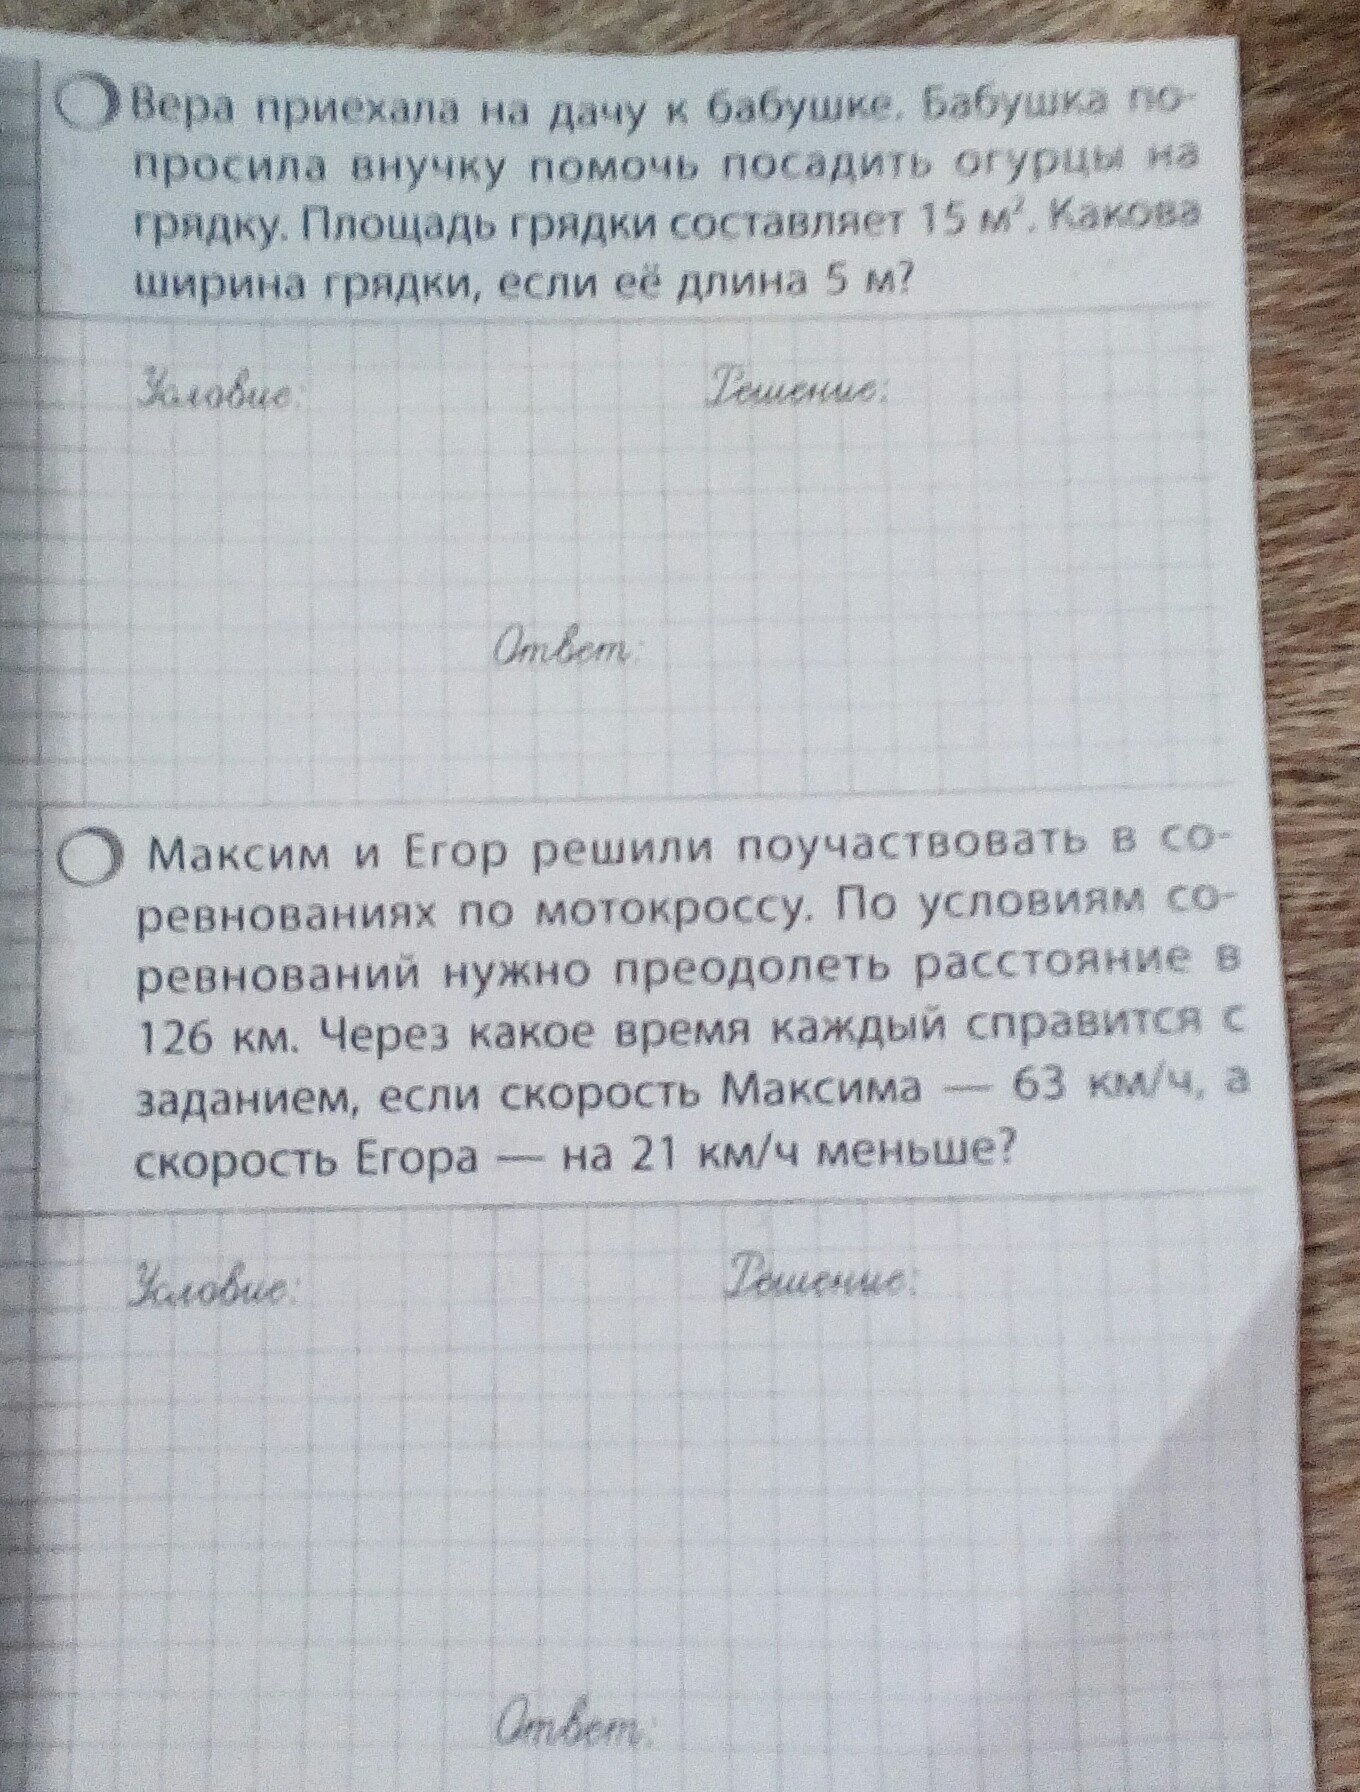 Вера приехала на дачу к бабушке. Бабушка по-
просила внучку помочь посадить огурцы на
грядку. Площадь грядки составляет 15 м². Какова
ширина грядки, если её длина 5 м?
Условие: Решение:
Ответ:
Максим и Егор решили поучаствовать в со-
ревнованиях по мотокроссу. По условиям со-
ревнований нужно преодолеть расстояние в
126 км. Через какое время каждый справится с
заданием, если скорость Максима — 63 км/ч, а
скорость Егора — на 21 км/ч меньше?
Условие: Решение:
Ответ: